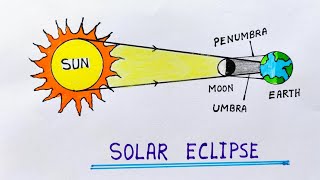 PENUMBRA
SUN
MOON
EARTH
UMBRA
SOLAR ECLIPSE